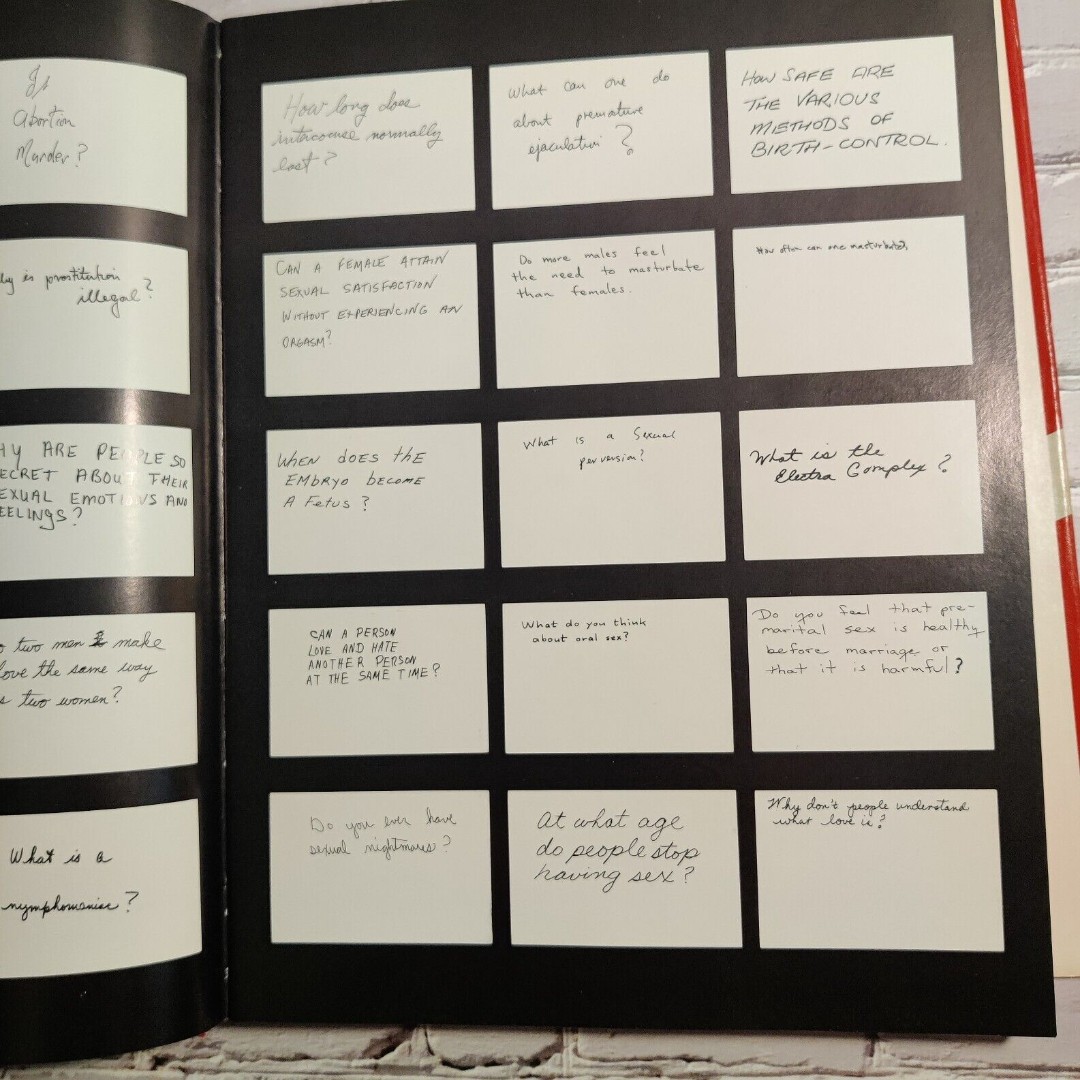 Is
Abortion
Murder?
is prostitution
illegal?
ARE PEOPLE SO
ABOUT THEIR
EMOTIONS AND
two men make
love the same way
two women?
What is a
nymphomaniac?
How long does
intercourse normally
last?
What can one do
about premature
ejaculation?
HOW SAFE ARE
THE VARIOUS
METHODS OF
BIRTH-CONTROL.
CAN A FEMALE ATTAIN
SEXUAL SATISFACTION
WITHOUT EXPERIENCING AN
ORGASM?
Do more males feel
the need to masturbate
than females.
How often can one masturbate?
WHEN DOES thE
EMbryo become
A Fetus?
What is a Sexual
perversion?
What is the
Electra Complex?
CAN A PERSON
LOVE AND HATE
ANOTHER PERSON
AT THE SAME TIME?
What do you think
about oral sex?
Do you feel that pre-
marital sex is healthy
before marriage or
that it is harmful?
Do you ever have
sexual nightmares?
At what age
do people stop
having sex?
Why don't people understand
what love is?